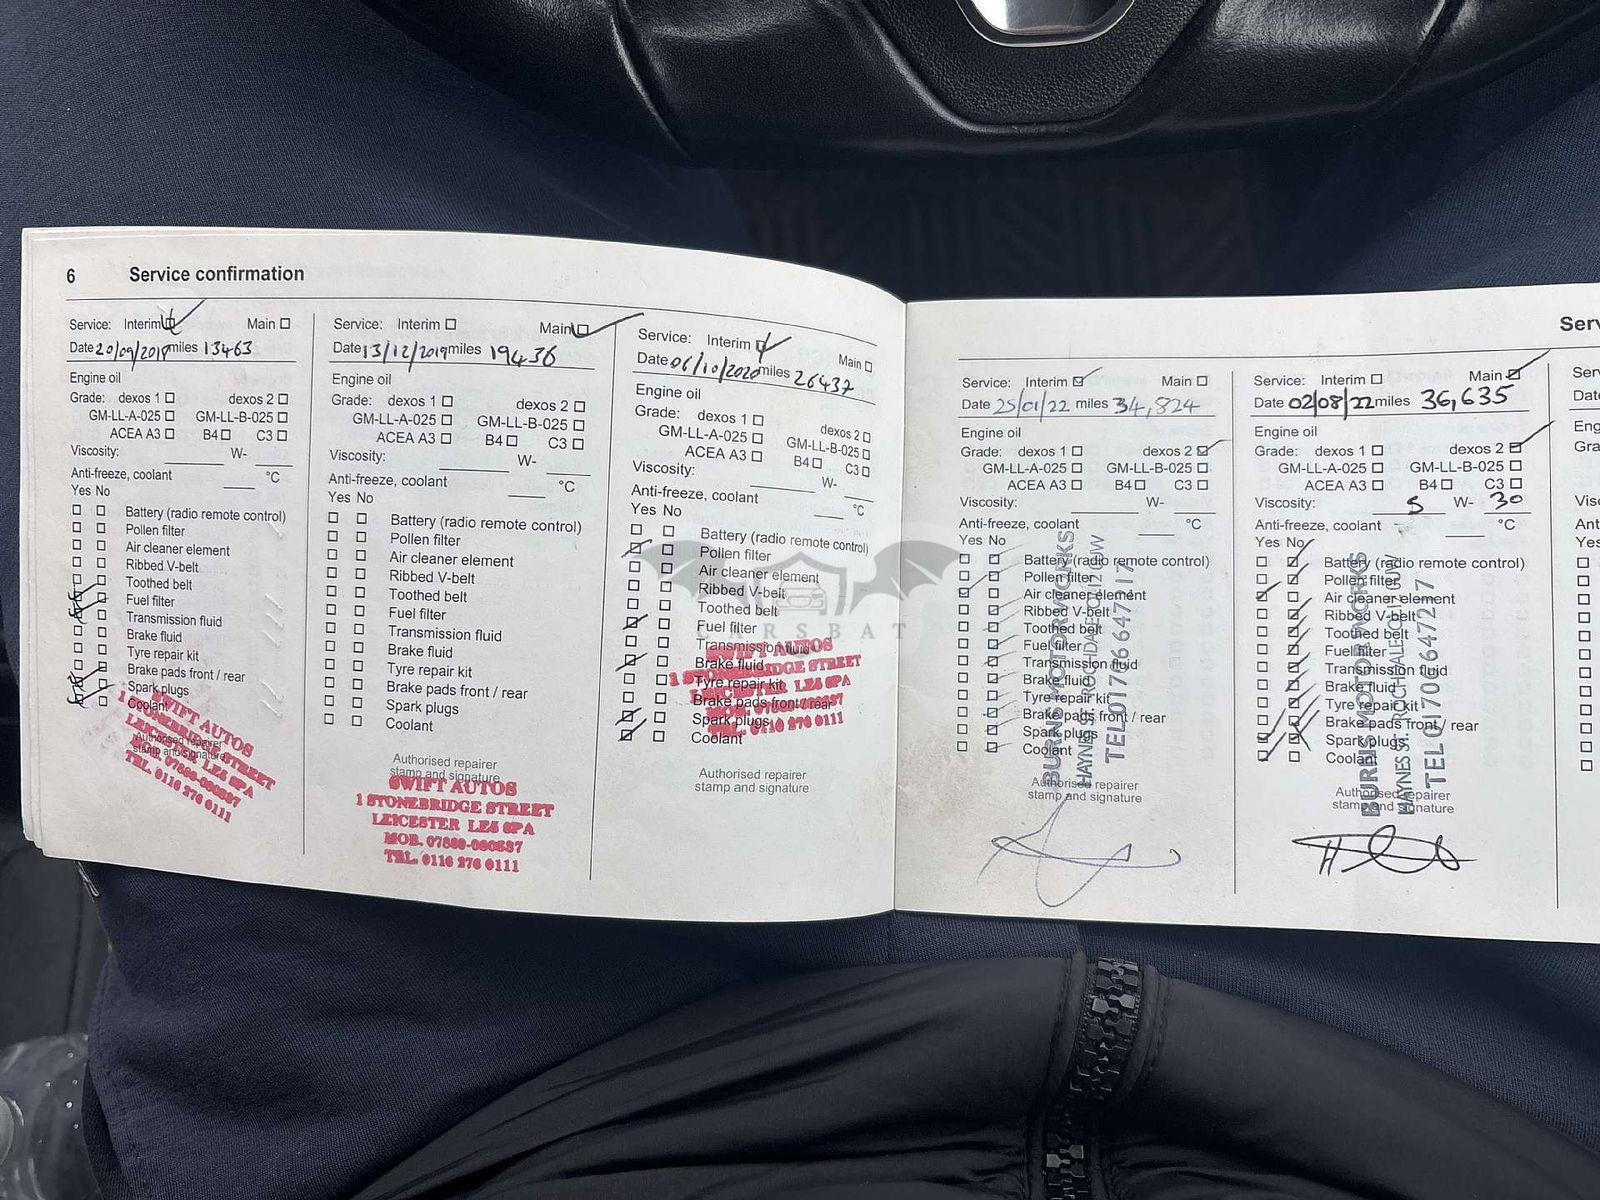 6 Service confirmation
Service: Interim Main
Date 20/09/2018 miles 13463
Engine oil
Grade: dexos 1 dexos 2
GM-LL-A-025 GM-LL-B-025
ACEA A3 B4 C3
Viscosity: W-
Anti-freeze, coolant °C
Yes No
Battery (radio remote control)
Pollen filter
Air cleaner element
Ribbed V-belt
Toothed belt
Fuel filter
Transmission fluid
Brake fluid
Tyre repair kit
Brake pads front / rear
Spark plugs
Coolant
Authorised repairer
stamp and signature
SWIFT AUTOS
1 STONEBRIDGE STREET
LEICESTER LE5
TEL. 0116 276 0111
Service: Interim Main
Date 13/12/2019 miles 19436
Engine oil
Grade: dexos 1 dexos 2
GM-LL-A-025 GM-LL-B-025
ACEA A3 B4 C3
Viscosity: W-
Anti-freeze, coolant °C
Yes No
Battery (radio remote control)
Pollen filter
Air cleaner element
Ribbed V-belt
Toothed belt
Fuel filter
Transmission fluid
Brake fluid
Tyre repair kit
Brake pads front / rear
Spark plugs
Coolant
Authorised repairer
stamp and signature
SWIFT AUTOS
1 STONEBRIDGE STREET
LEICESTER LE5
TEL. 0116 276 0111
Service: Interim Main
Date 06/10/2020 miles 26437
Engine oil
Grade: dexos 1 dexos 2
GM-LL-A-025 GM-LL-B-025
ACEA A3 B4 C3
Viscosity: W-
Anti-freeze, coolant °C
Yes No
Battery (radio remote control)
Pollen filter
Air cleaner element
Ribbed V-belt
Toothed belt
Fuel filter
Transmission fluid
Brake fluid
Tyre repair kit
Brake pads front / rear
Spark plugs
Coolant
SWIFT AUTOS
1 STONEBRIDGE STREET
LEICESTER LE5
TEL. 0116 276 0111
Authorised repairer
stamp and signature
CARSBAT
Service: Interim Main
Date 25/01/22 miles 34,824
Engine oil
Grade: dexos 1 dexos 2
GM-LL-A-025 GM-LL-B-025
ACEA A3 B4 C3
Viscosity: W-
Anti-freeze, coolant °C
Yes No
Battery (radio remote control)
Pollen filter
Air cleaner element
Ribbed V-belt
Toothed belt
Fuel filter
Transmission fluid
Brake fluid
Tyre repair kit
Brake pads front / rear
Spark plugs
Coolant
Authorised repairer
stamp and signature
BURNS MOTORWORKS
HAYNES ST. ROCHDALE
TEL 01706 647217
Service: Interim Main
Date 02/08/22 miles 36,635
Engine oil
Grade: dexos 1 dexos 2
GM-LL-A-025 GM-LL-B-025
ACEA A3 B4 C3
Viscosity: 5 W- 30
Anti-freeze, coolant °C
Yes No
Battery (radio remote control)
Pollen filter
Air cleaner element
Ribbed V-belt
Toothed belt
Fuel filter
Transmission fluid
Brake fluid
Tyre repair kit
Brake pads front / rear
Spark plugs
Coolant
Authorised repairer
stamp and signature
BURNS MOTORWORKS
HAYNES ST. ROCHDALE
TEL 01706 647217